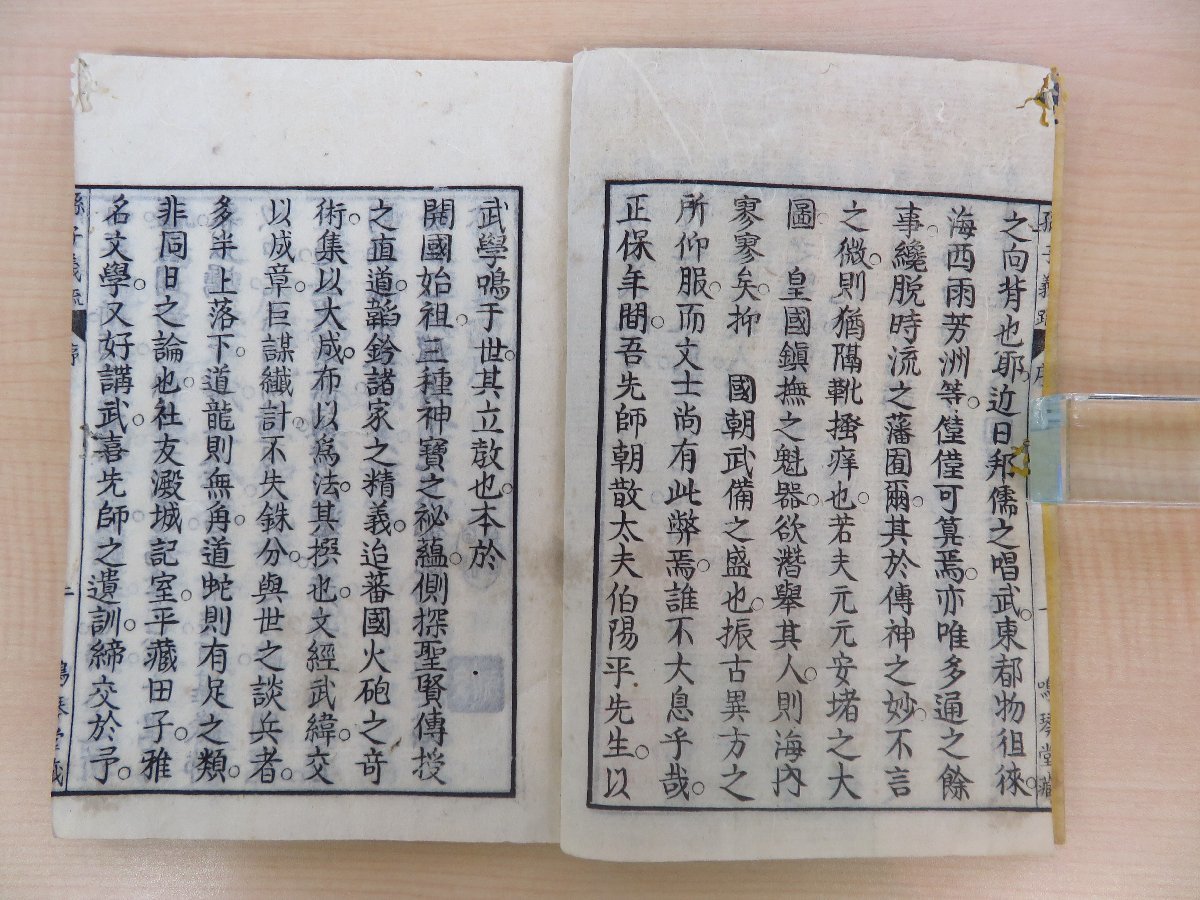 之向背也耶近日邦儒之唱武東都物徂徠。
海西雨芳洲等。僅僅可算焉亦唯多通之餘
事。纔脱時流之藩囿爾。其於傳神之妙。不言
之微。則猶隔靴搔痒也。若夫元元安堵之大
圖。　皇國鎮撫之魁器。欲潛擧其人。則海內
寥寥矣。抑　國朝武備之盛也。振古異方之
所仰服。而文士尚有此弊焉。誰不大息乎哉。
正保年間。吾先師朝散太夫伯陽平先生。以
武學鳴于世。其立敎也。本於
闢國始祖。三種神寶之祕蘊。側探聖賢傳授
之直道。韜鈐諸家之精義。迨蕃國火砲之奇
術。集以大成。布以爲法。其撰也。文經武緯。交
以成章。巨謀纖計。不失銖分。與世之談兵者。
多半上落下。道龍則無角。道蛇則有足之類。
非同日之論也。社友澱城記室。平藏田子。雅
名文學。又好講武。喜先師之遺訓。締交於予。
孫子義疏 序 一 鳴琴堂藏
孫子義疏 序 二 鳴琴堂藏